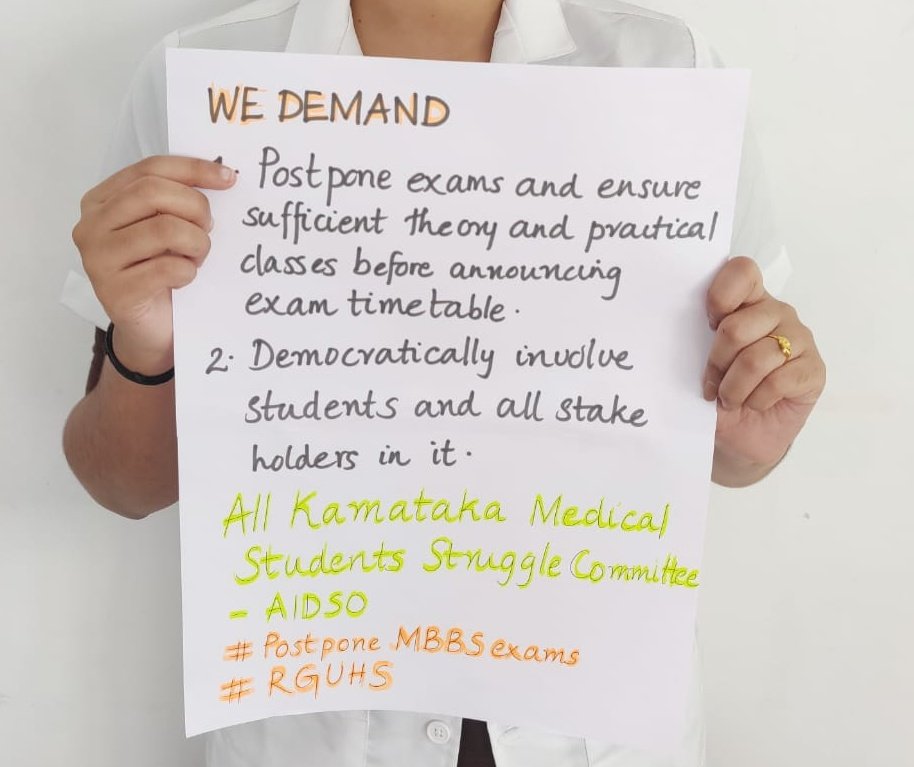 WE DEMAND
1. Postpone exams and ensure
sufficient theory and practical
classes before announcing
exam timetable.
2. Democratically involve
students and all stake
holders in it.
All Karnataka Medical
Students Struggle Committee
- AIDSO
# Postpone MBBS exams
# RGUHS